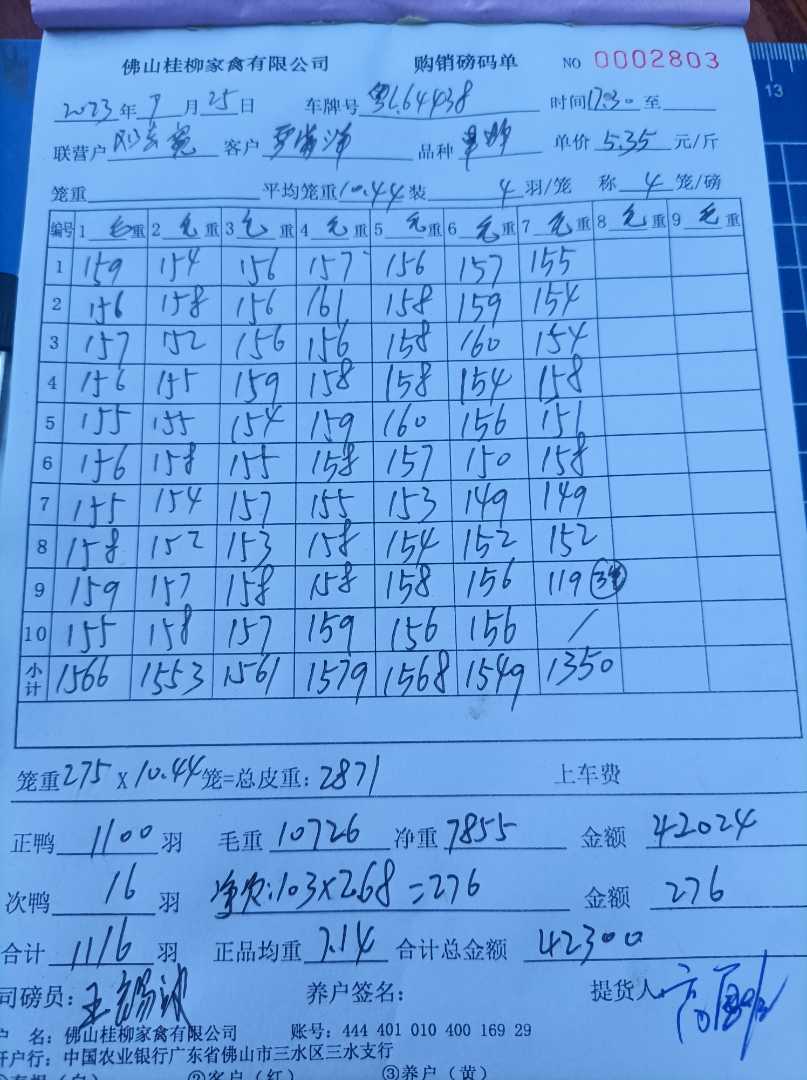 佛山桂柳家禽有限公司 购销磅码单 NO 0002803
2023年9月25日 车牌号 粤L64438 时间17:30至
联营户 客户 品种 单价 5.35 元/斤
笼重 平均笼重10.44装 4 羽/笼 称 4 笼/磅
编号 1 毛重 2 毛重 3 毛重 4 毛重 5 毛重 6 毛重 7 毛重 8 毛重 9 毛重
1 159 154 156 157 156 157 155
2 156 158 156 161 158 159 154
3 157 152 156 156 158 160 154
4 156 155 159 158 158 154 158
5 155 155 154 159 160 156 151
6 156 158 155 158 157 150 158
7 155 154 157 155 153 149 149
8 158 152 153 158 154 152 152
9 159 157 158 158 158 156 119
10 155 158 157 159 156 156 /
小计 1566 1553 1561 1579 1568 1549 1350
笼重275×10.44笼=总皮重：2871 上车费
正鸭 1100 羽 毛重 10726 净重 7855 金额 42024
次鸭 16 羽 净次:103×2.68=276 金额 276
合计 1116 羽 正品均重 7.14 合计总金额 42300
司磅员： 养户签名： 提货人
户 名：佛山桂柳家禽有限公司 账号：444 401 010 400 169 29
开户行：中国农业银行广东省佛山市三水区三水支行
①存根（白） ②客户（红） ③养户（黄）
13